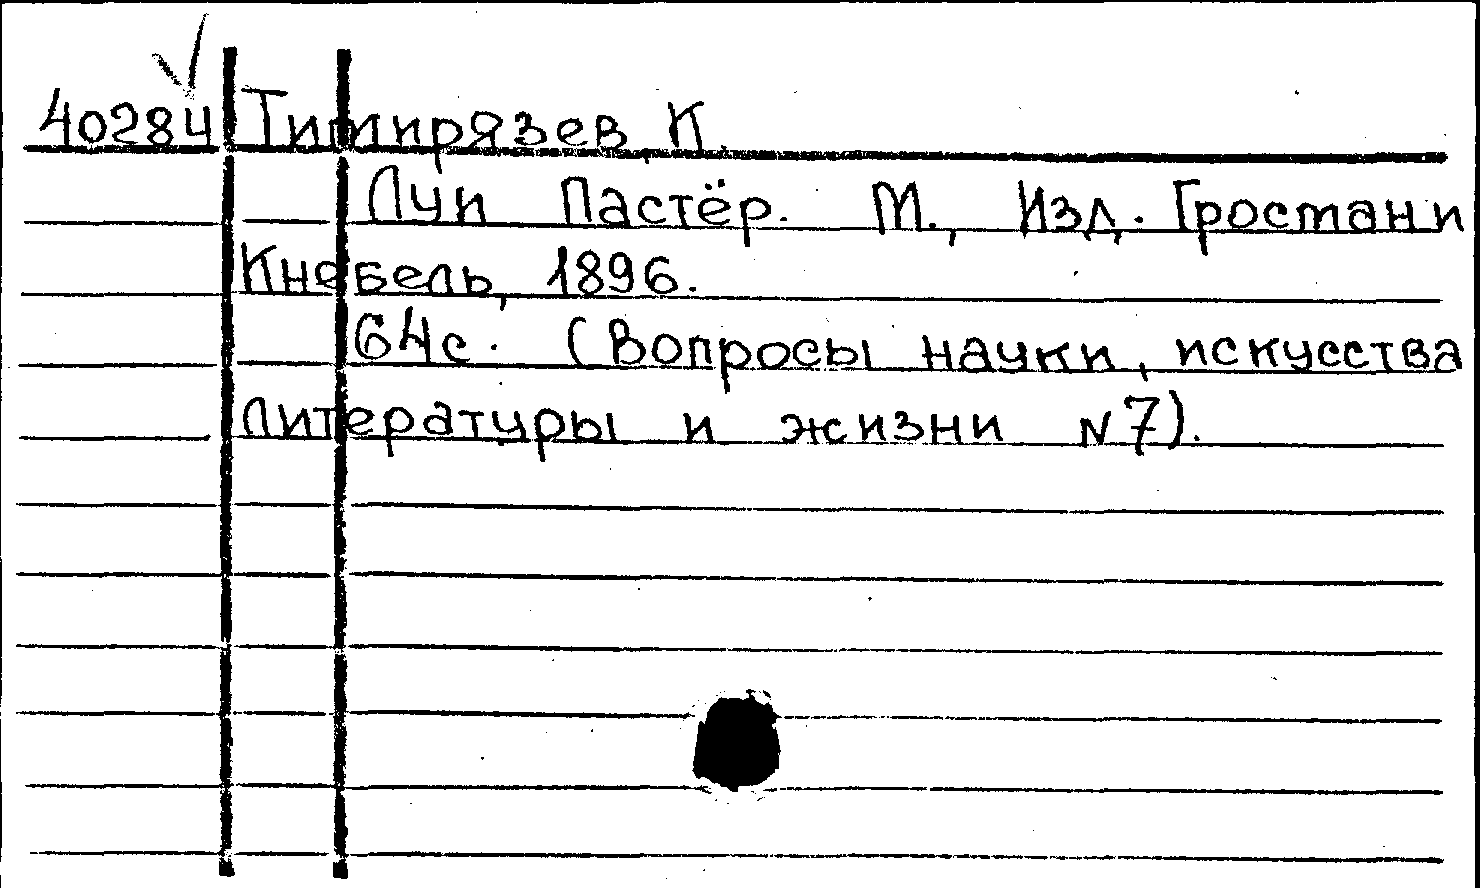 40284 Тимирязев К.
Луи Пастёр. М., Изд. Гростан и
Кнебель, 1896.
64с. (Вопросы науки, искусства
литературы и жизни N7).